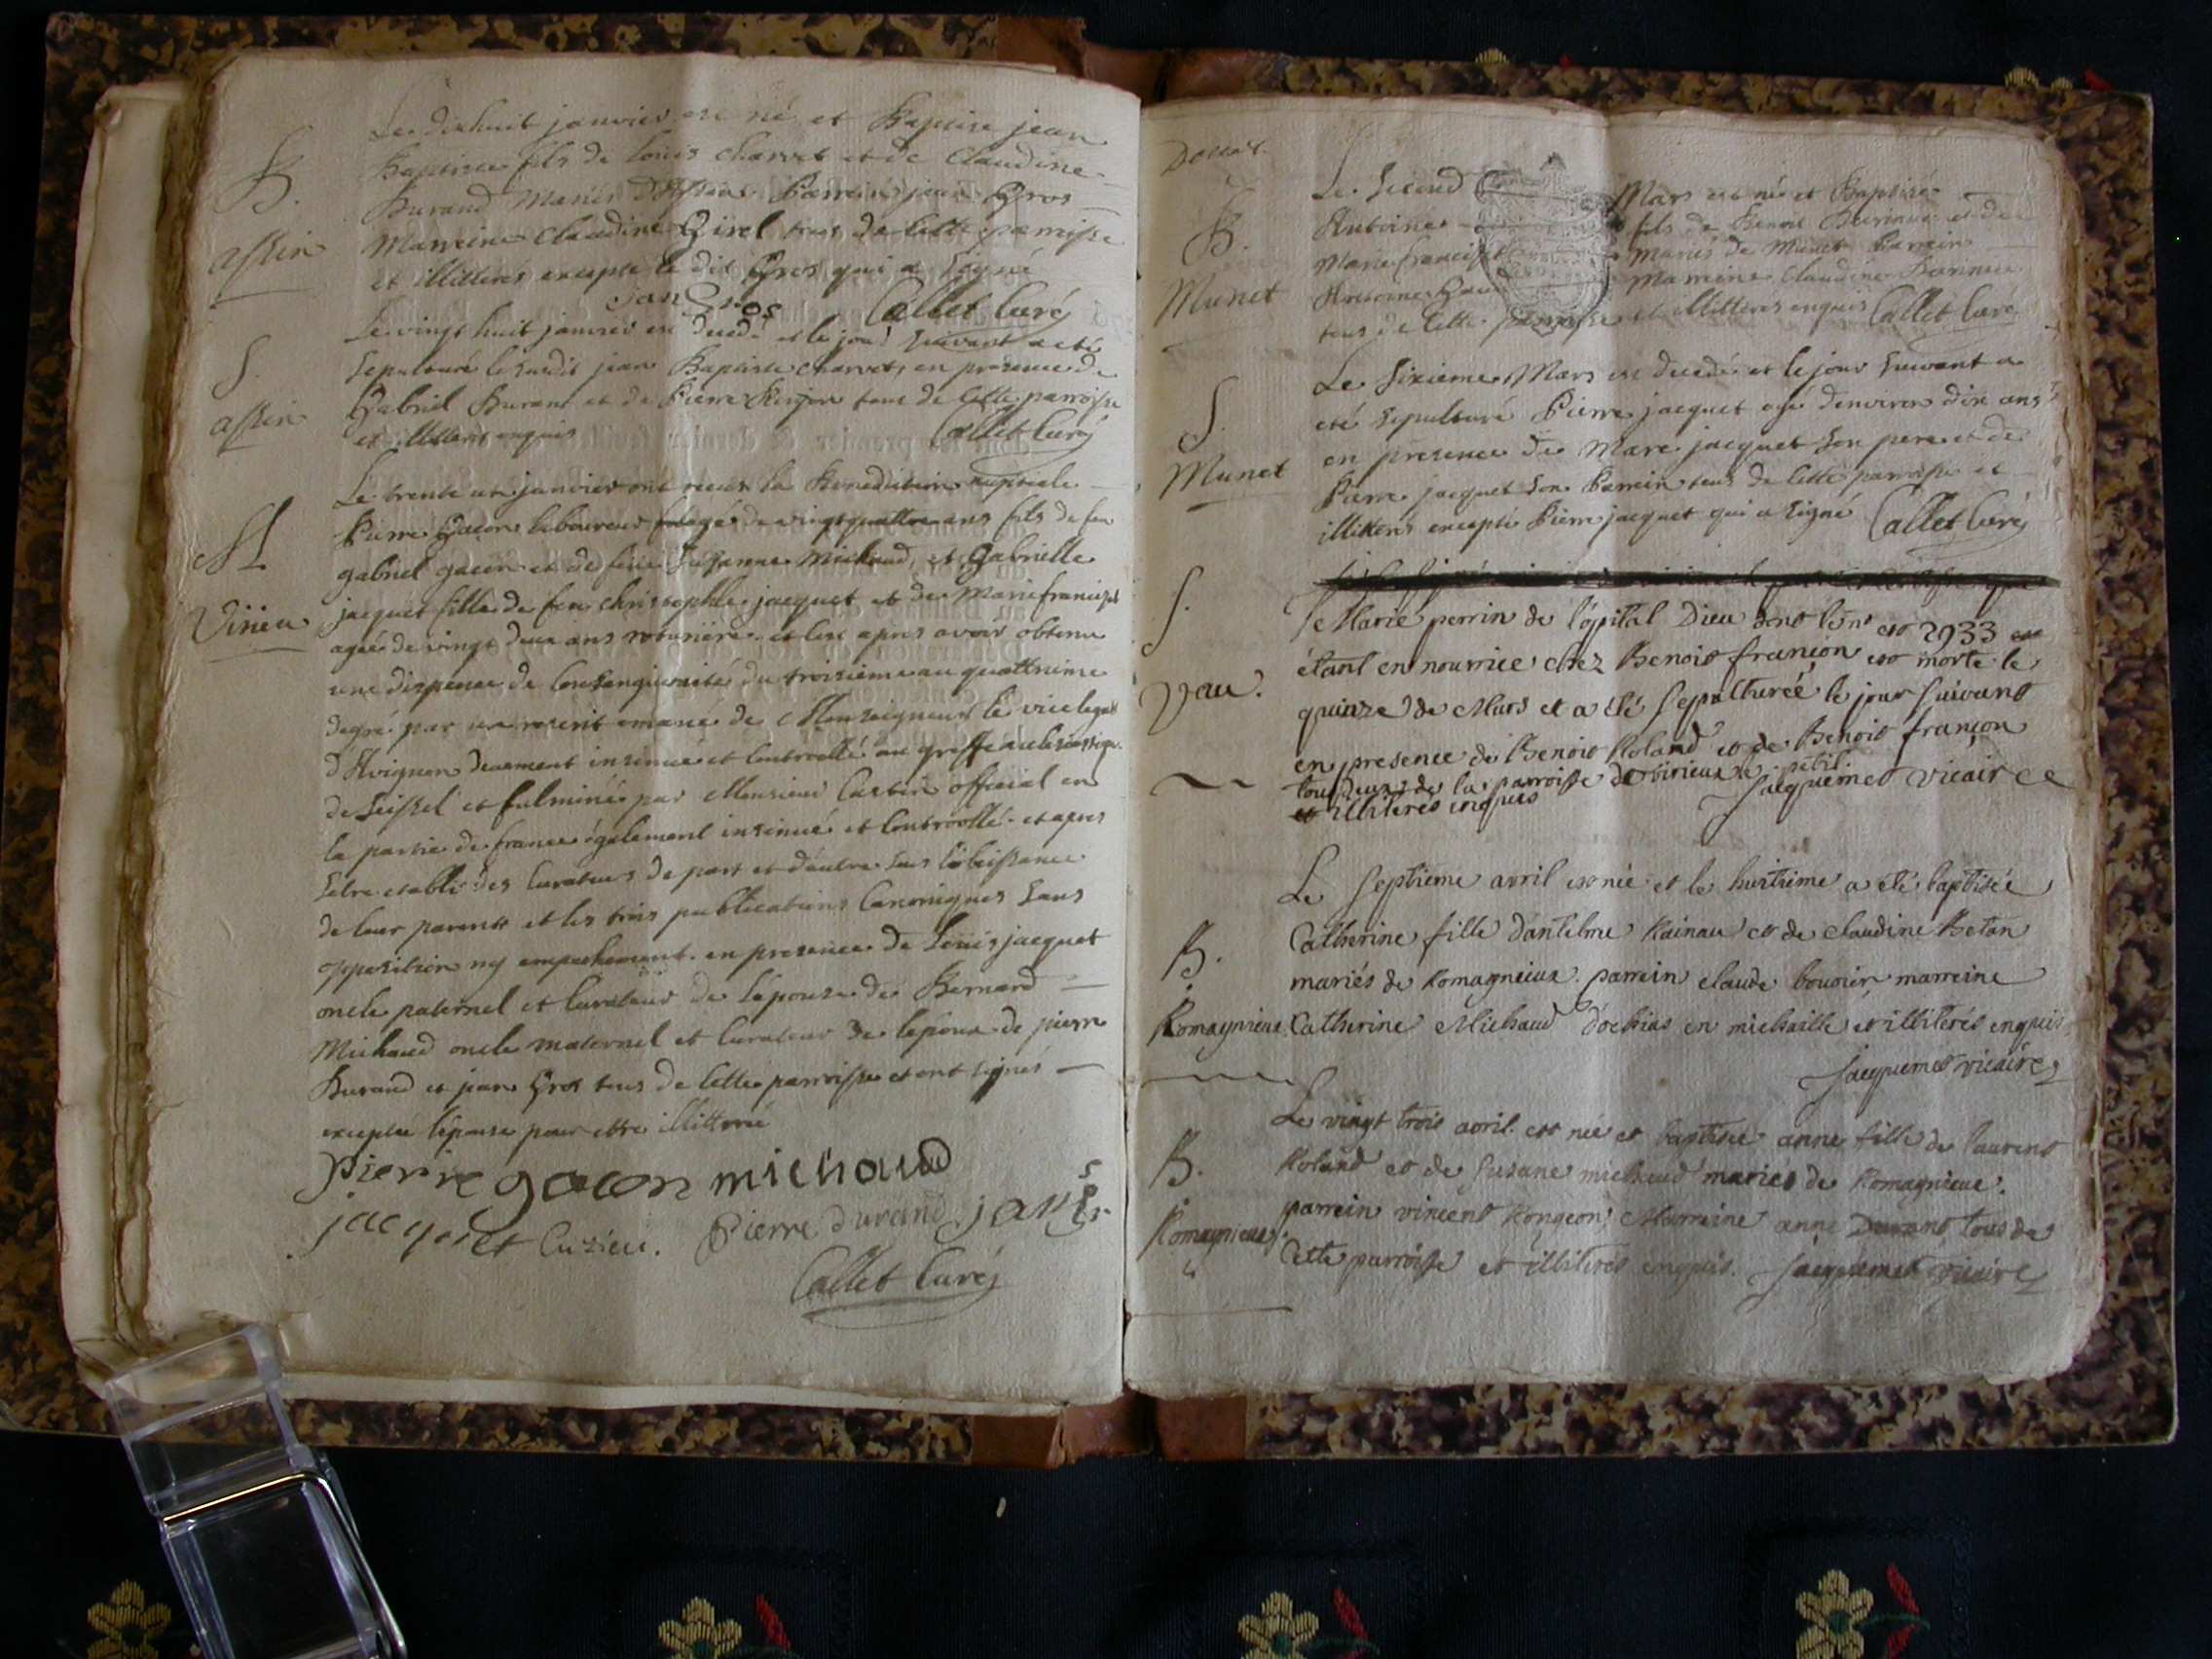 Le dixhuit janvier est né et Baptisé jean
B.
Baptiste fils de Louis Charvet et de Claudine
Durand Mariés d'Assin Parrein jean Gros
assin
Marreine Claudine Girel tous de cette parroisse
et illitterés excepté le dit Gros qui a signé
jan Gros Callet Curé
Le vingt huit janvier est decedé et le jour suivant a eté
S.
sepulturé le susdit jean Baptiste charvet, en presence de
assin
Gabriel Durand et de Pierre tous de cette parroisse
et illitterés enquis Callet Curé
Le trente un janvier ont receu la Benediction nuptiale
M
Pierre Gacon laboureur agé de vingt quattre ans fils de feu
gabriel gacon et de feüe Suzanne Michaud, et Gabrielle
Virieu
jacquet fille de feu christophle jacquet et de Marie
agée de vingt deux ans roturiere et ce apres avoir obtenu
une dispence de Consanguinité du troisieme au quattrieme
degré par un rescrit emané de Monseigneur le vice legat
d'Avignon deuement insinué et Controollé au greffe eclesiastique
de Seissel et fulminé par Monsieur official en
la partie de france également insinué et Controollé et apres
s'etre etabli des Curateurs de part et d'autre sans
de leur parents et les trois publications Canoniques sans
opposition ny empechement. en presence de Loüis jacquet
oncle paternel et Curateur de l'epouse de Bernard
Michaud oncle maternel et Curateur de l'epoux de pierre
Durand et jean Gros tous de cette parroisse et ont signés
exceptée l'epouse pour etre illitterée
pierre gacon michaud
jacquet Cuzieu. Pierre durand jan gros
Callet Curé
Le second Mars est né et Baptisé
B.
Antoine fils de Benoit et de
Marie mariés de Munet Parrein
Munet
Antoine Marreine Claudine
tous de Cette parroisse et illitterés enquis Callet Curé
Le sixieme Mars est decedé et le jour suivant a
S.
eté sepulturé Pierre jacquet agé denviron dix ans
Munet
en presence de Marc jacquet son pere et de
Pierre jacquet son Parrein tous de cette parroisse et
illitterés excepté Pierre jacquet qui a signé Callet Curé
S.
Marie perrin de l'ôpital Dieu dont le n° est 2933
étant en nourrice chez Benoit françon est morte le
vau.
quinze de Mars et a été sepulturée le jour suivant
en presence de Benoit Roland et de Benoit françon
tous deux de la parroisse de virieux le petit
et illiterés enquis Jacquemet vicaire
Le septieme avril est née et le huitieme a été baptisée
B.
Catherine fille d'antelme Rainau et de claudine Betan
mariés de Romagnieux parrein claude bouvier marreine
Romagnieux
Catherine Michaud d'ochias en michaille et illiterés enquis
Jacquemet vicaire
Le vingt trois avril est née et baptisée anne fille de laurent
B.
Roland et de Susane michaud mariés de Romagnieux.
Romagnieux
parrein vincent Rongeon, Marreine anne Durand tous de
Cette parroisse et illiterés enquis. Jacquemet vicaire